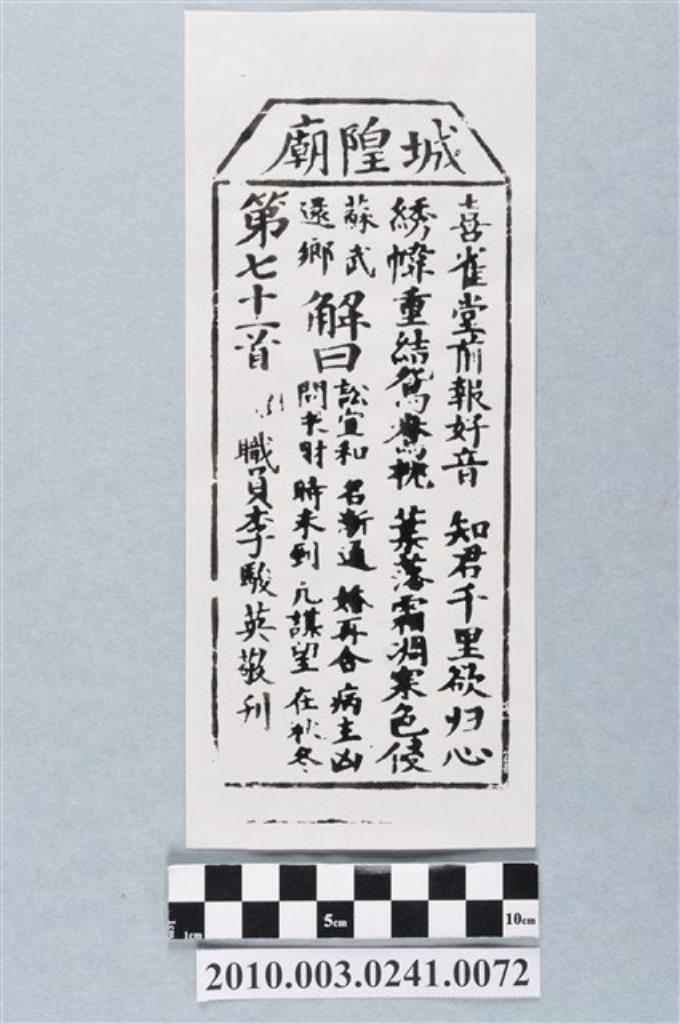 城隍廟
喜雀堂前報好音 知君千里欲归心
綉幃重結鴛鴦枕 葉落霜凋寒色侵
蘇武
還鄉
解曰
訟宜和 名漸通 婚再合 病主凶
問求財 時未到 凢謀望 在秋冬
第七十一首
職員李駿英敬刊
1cm 5cm 10cm
2010.003.0241.0072